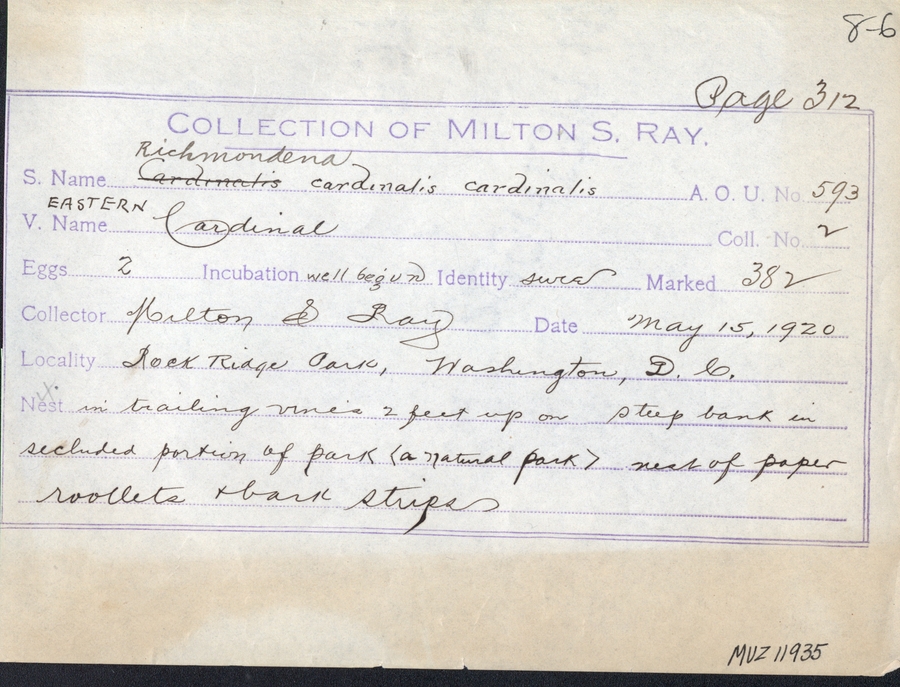 8-6
Page 312
COLLECTION OF MILTON S. RAY.
Richmondena
S. Name Cardinalis cardinalis cardinalis A. O. U. No. 593
EASTERN
V. Name Cardinal Coll. No. 2
Eggs 2 Incubation well begun Identity sured Marked 382
Collector Milton S Ray Date May 15, 1920
Locality Rock Ridge Park, Washington, D. C.
X.
Nest in trailing vines 2 feet up on steep bank in
secluded portion of park (a natural park) nest of paper
rootlets + bark strips
MVZ 11935